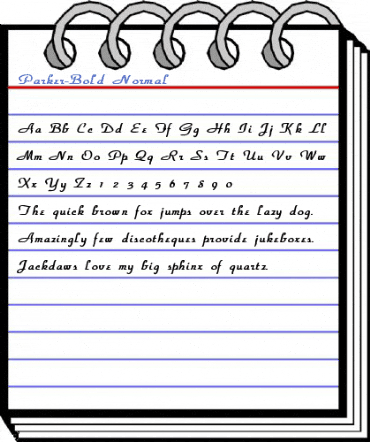 Parker-Bold Normal
Aa Bb Cc Dd Ee Ff Gg Hh Ii Jj Kk Ll
Mm Nn Oo Pp Qq Rr Ss Tt Uu Vv Ww
Xx Yy Zz 1 2 3 4 5 6 7 8 9 0
The quick brown fox jumps over the lazy dog.
Amazingly few discotheques provide jukeboxes.
Jackdaws love my big sphinx of quartz.